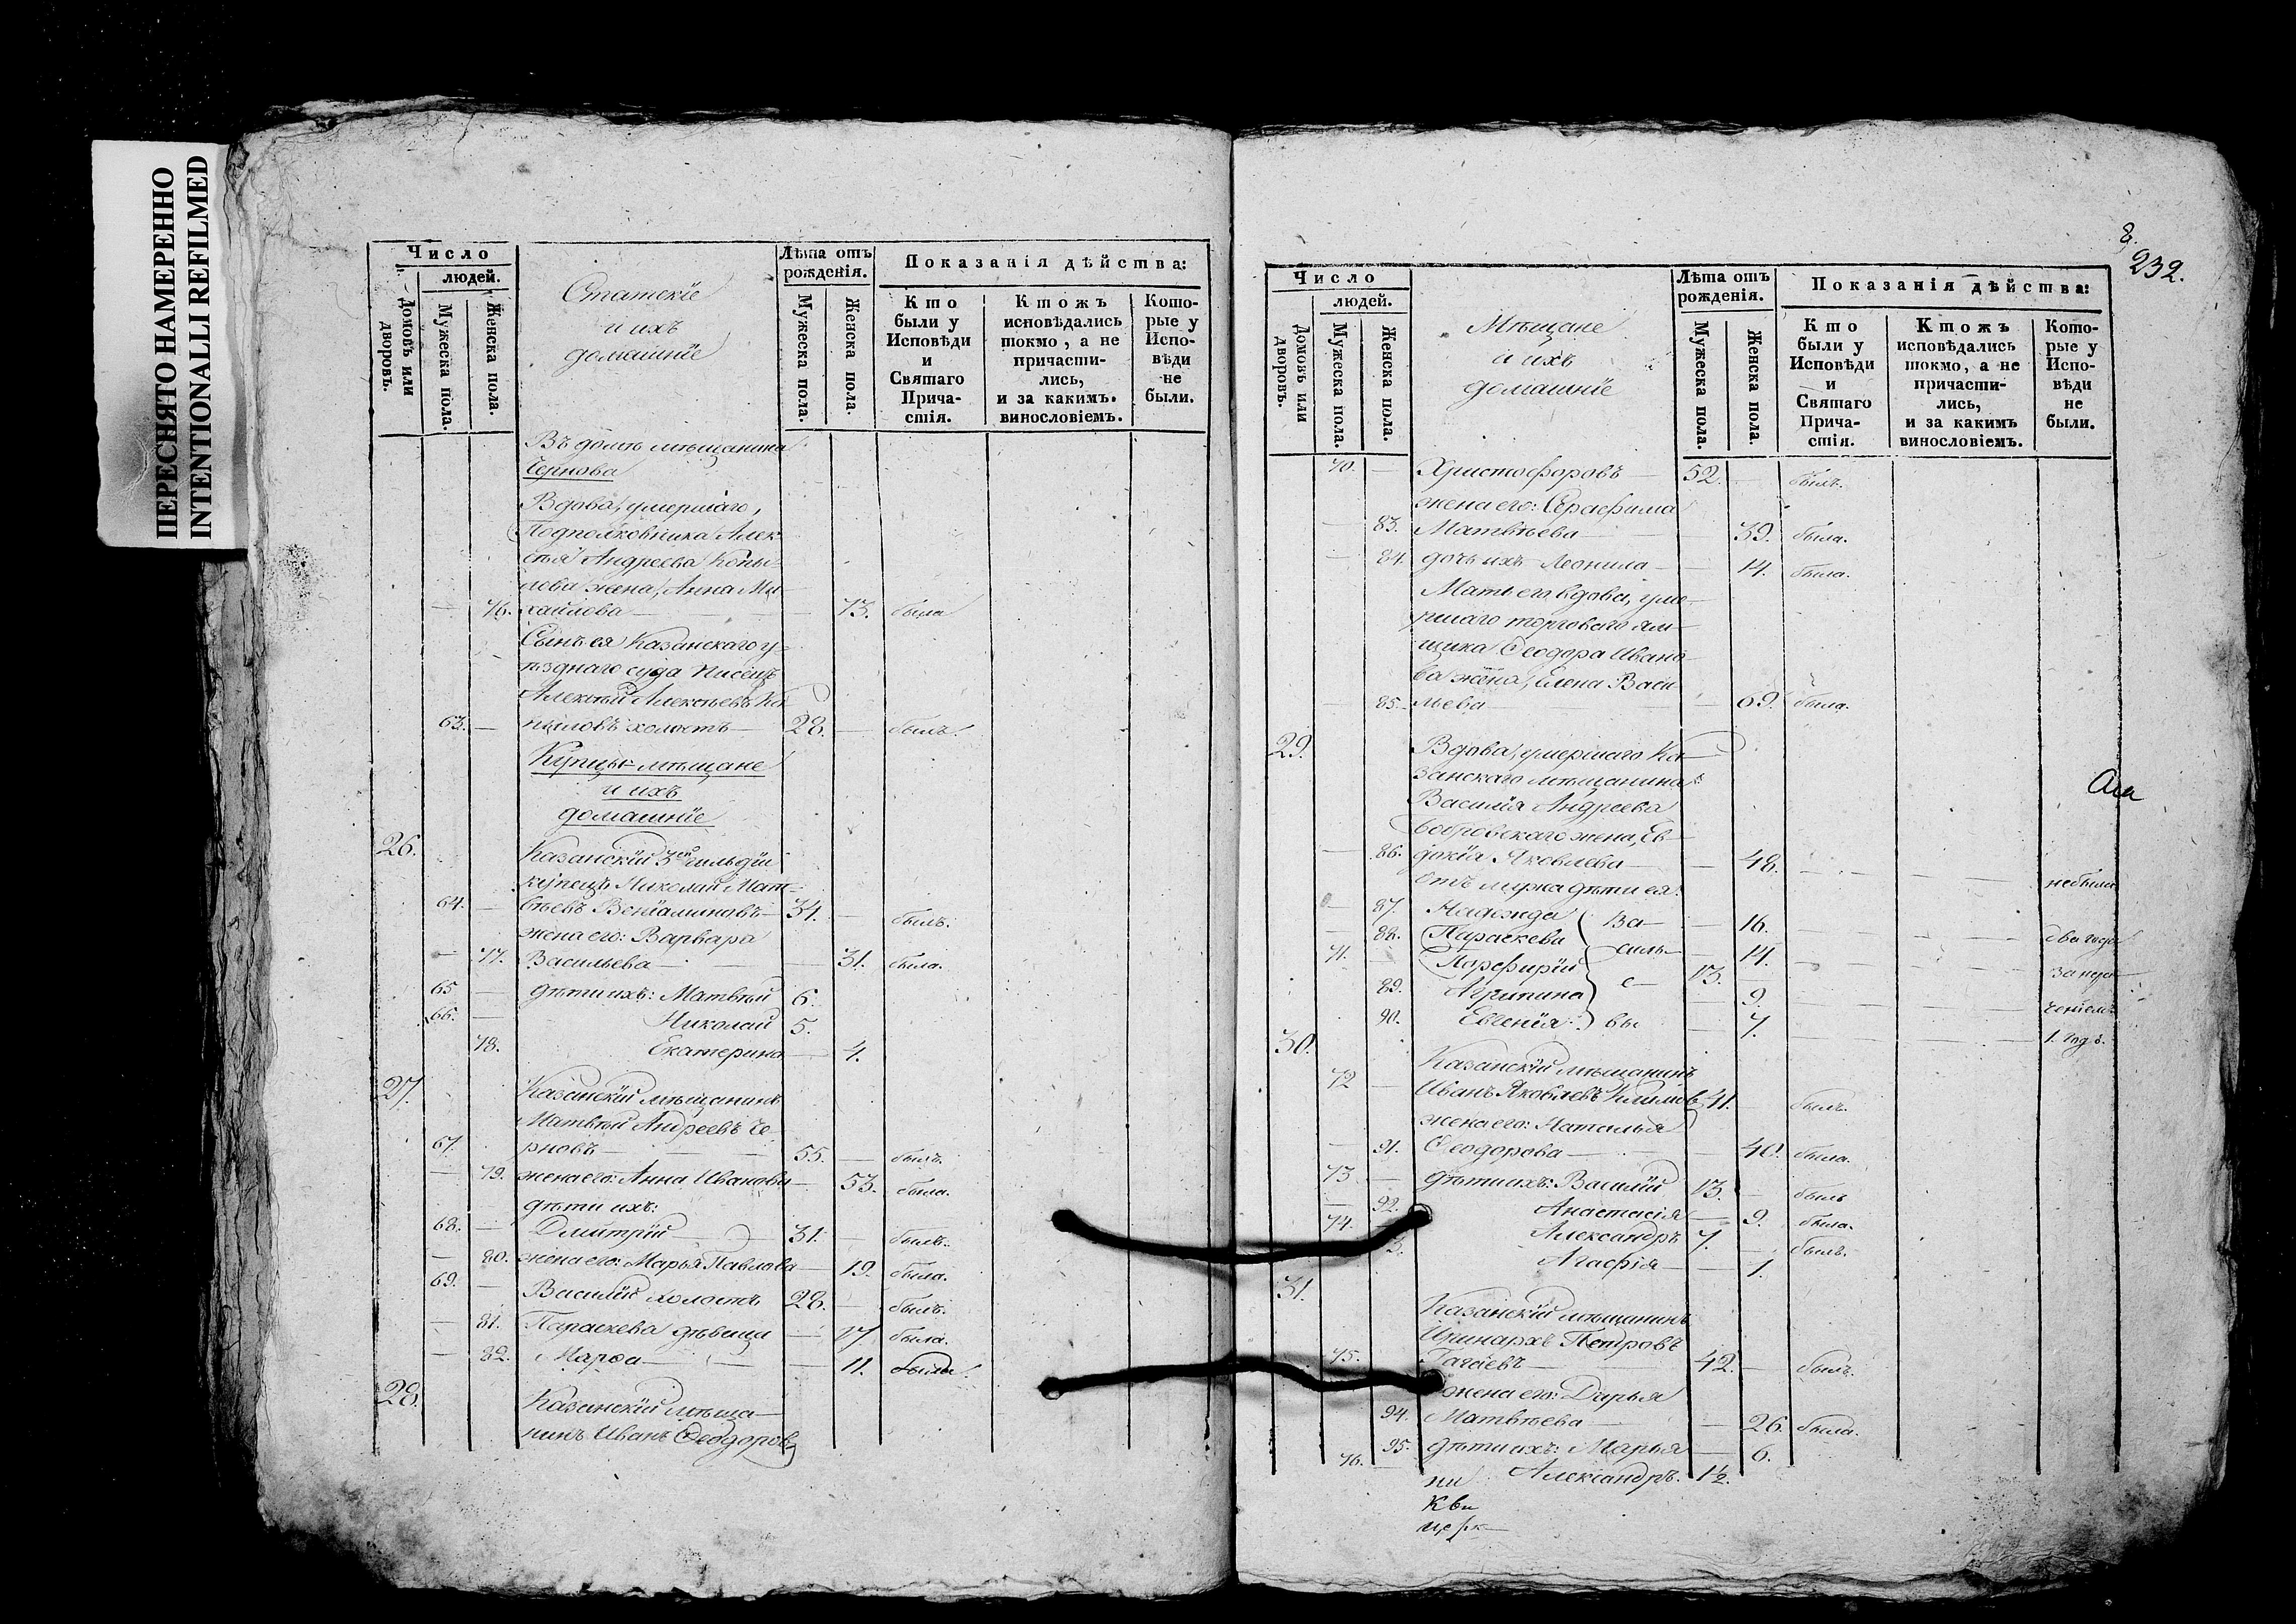 ПЕРЕСНЯТО НАМЕРЕННО
INTENTIONALLI REFILMED
Число
людей.
Домовъ или дворовъ.
Мужеска пола.
Женска пола.
Статскіе
и ихъ
домашніе
Лѣта отъ рожденія.
Мужеска пола.
Женска пола.
Показанія дѣйства:
Кто были у Исповѣди и Святаго Причастія.
Ктожъ исповѣдались токмо, а не причастились, и за какимъ винословіемъ.
Которые у Исповѣди не были.
Въ домѣ мѣщанина
Чернова
Вдова, умершаго,
Подполковника Алек-
сѣя Андреева Копы-
лева жена, Анна Ми-
— 76. хайлова — — 73. была
Сынъ ея Казанскаго у-
ѣзднаго суда писецъ
Алексѣй Алексѣевъ Ко
63. — пыловъ холостъ — 28. — былъ.
Купцы мѣщане
и ихъ
домашніе
26. Казанскій 3ей гильдіи
купецъ Николай Мат-
64. — вѣевъ Веніаминовъ — 34. — былъ.
жена его: Варвара
— 77. Васильева — — 31. была.
65 — дѣти ихъ: Матвѣй 6.
66. — Николай 5.
78. Екатерина — 4.
27. Казанскій мѣщанинъ
Матвѣй Андреевъ Че-
67. рновъ — 55. — былъ.
— 79. жена его: Анна Иванова — 53. была.
дѣти ихъ:
68. — Дмитрій — 31. — былъ.
— 80. жена его: Марья Павлова — 19. была.
69. — Василій холостъ 28. — былъ.
— 81. Параскева дѣвица — 17. была.
— 82. Марѳа — — 11. была.
28. Казанскій мѣща-
нинъ Иванъ Ѳеодоровъ
8.
232.
Число
людей.
Домовъ или дворовъ.
Мужеска пола.
Женска пола.
Мѣщане
и ихъ
домашніе
Лѣта отъ рожденія.
Мужеска пола.
Женска пола.
Показанія дѣйства:
Кто были у Исповѣди и Святаго Причастія.
Ктожъ исповѣдались токмо, а не причастились, и за какимъ винословіемъ.
Которые у Исповѣди не были.
70. — Христофоровъ — 52. — былъ.
жена его: Серафима
— 83. Матвѣева — — 39. была.
— 84. дочь ихъ Леонила — 14. была.
Мать его вдова, уме-
ршаго торговаго ям-
щика Ѳеодора Ивано-
ва жена, Елена Васи
— 85. — льева — — 69. была.
29. Вдова, умершаго Ка-
занскаго мѣщанина
Василія Андреева
Бобровскаго жена, Ев-
— 86. докіа Яковлева — — 48. — не была
отъ мужа дѣти ея:
— 87. Надежда Ва — — 16.
— 88. Параскева силь — 14. два года
71. — Порфирій е — 13. за нера-
89. Агрипина — 9. ченіемъ
90. Евгенія вы — 7. 1. годъ.
30. Казанскій мѣщанинъ
72 — Иванъ Яковлевъ Климовъ 41. — былъ.
жена его: Наталья
— 91. Ѳеодорова — — 40. была.
73 — дѣти ихъ: Василій 13. — былъ
— 92. Анастасія — 9. была.
74. Александръ 7. — былъ.
3. Агафія — — 1.
31. Казанскій мѣщанинъ
Иринархъ Петровъ
75. Пагаевъ — 42. — былъ.
жена его: Дарья
94. Матвѣева — — 26. была.
95. дѣти ихъ: Марья — 6.
76. — Александръ. 1½.
ни
Кви
церк